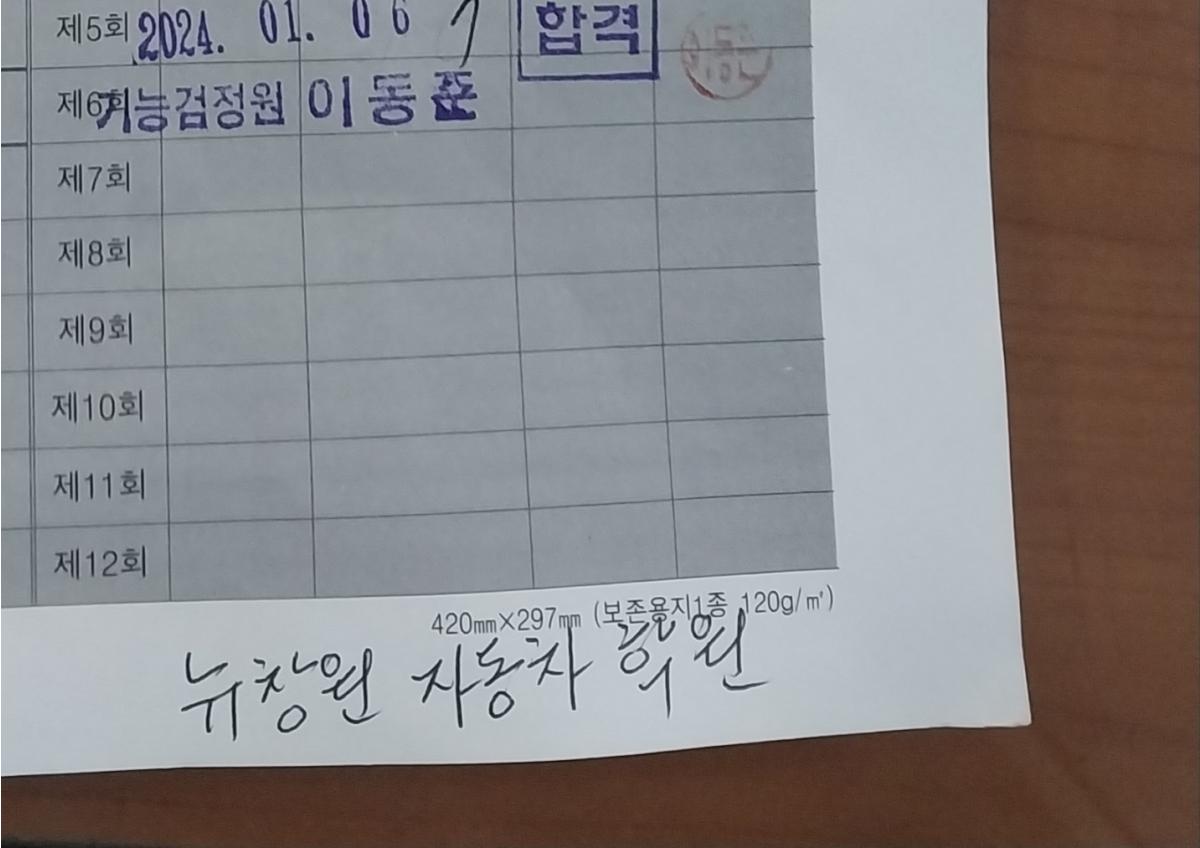 제5회 2024. 01. 06 합격
제6회 기능검정원 이동준
제7회
제8회
제9회
제10회
제11회
제12회
420㎜×297㎜ (보존용지1종 120g/㎡)
뉴창원 자동차 학원